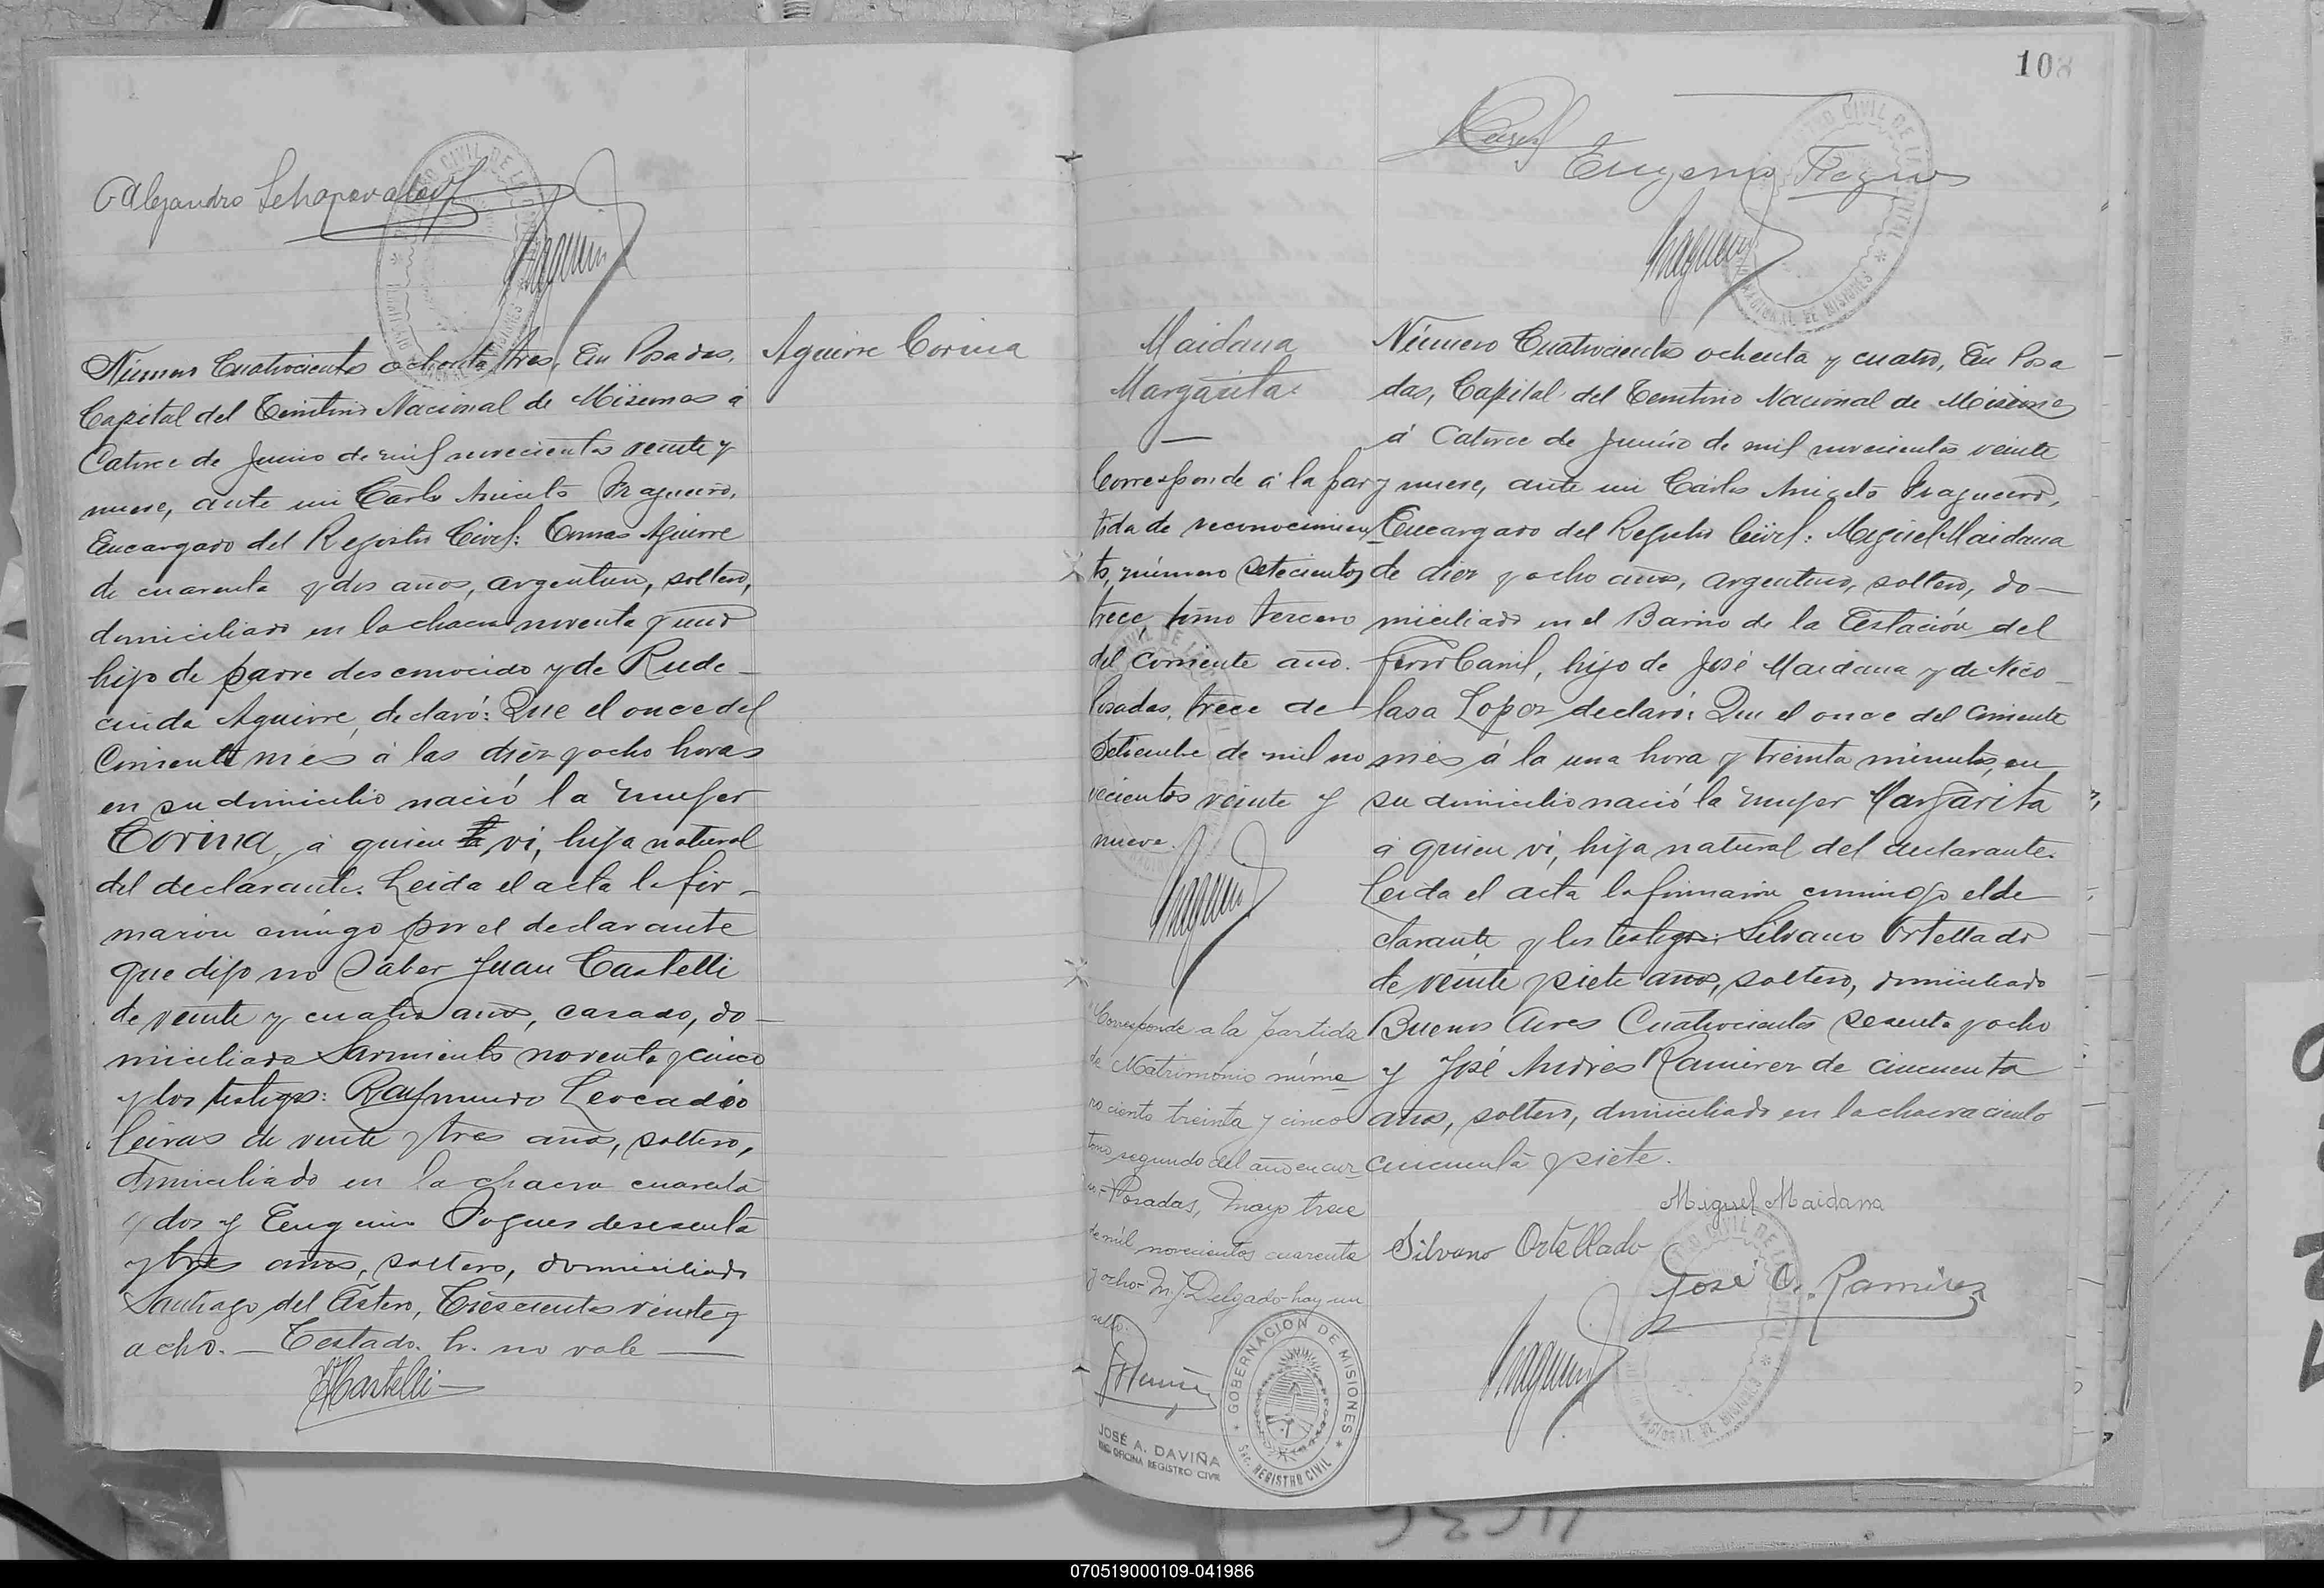 Alejandro Schapovaloff
Número Cuatrocientos ochenta tres, En Posadas,
Capital del Territorio Nacional de Misiones á
Catorce de Junio de mil novecientos veinte y
nueve, ante mi Carlos Aniceto Fragueiro,
Encargado del Registro Civil: Tomas Aguirre
de cuarenta y dos años, argentino, soltero,
domiciliado en la chacra noventa y uno
hijo de padre desconocido y de Rude-
cinda Aguirre, declaró: Que el once del
Corriente mes á las diez y ocho horas
en su domicilio nació la mujer
Corina, á quien vi, hija natural
del declarante. Leida el acta la fir-
maron conmigo por el declarante
que dijo no Saber Juan Castelli
de veinte y cuatro años, casado, do-
miciliado Sarmiento noventa y cinco
y los testigos: Raymundo Leocadio
Leivas de veinte y tres años, soltero,
domiciliado en la chacra cuarenta
y dos y Eugenio de sesenta
y tres años, soltero, domiciliado
Santiago del Estero, Trescientos veinte y
ocho.— Testado. h. no vale —
Castelli
Aguirre Corina
108
Eugenio
Maidana
Margarita.
Corresponde á la par
tida de reconocimien
to, número Setecientos
trece, tomo tercero
del Corriente año.
Posadas, trece de
Setiembre de mil no
vecientos veinte y
nueve.
Corresponde a la partida
de Matrimonio núme
ro ciento treinta y cinco
tomo segundo del año en cur
so - Posadas, Mayo trece
de mil novecientos cuarenta
y ocho - M. J. Delgado - hay un
sello.
JOSÉ A. DAVIÑA
OFICINA REGISTRO CIVIL
GOBERNACION DE MISIONES
Sec. REGISTRO CIVIL
Número Cuatrocientos ochenta y cuatro, En Posa
das, Capital del Territorio Nacional de Misiones
á Catorce de Junio de mil novecientos veinte
y nueve, ante mi Carlos Aniceto Fragueiro,
Encargado del Registro Civil: Miguel Maidana
de diez y ocho años, argentino, soltero, do-
miciliado en el Barrio de la Estación del
Ferro Carril, hijo de José Maidana y de Nico-
lasa Lopez declaró: Que el once del corriente
mes á la una hora y treinta minutos, en
su domicilio nació la mujer Margarita
á quien vi, hija natural del declarante.
Leida el acta la firmaron conmigo el de
clarante y los testigos: Silvano Ortellado
de veinte y siete años, soltero, domiciliado
Buenos Aires Cuatrocientos sesenta y ocho
y José Andrés Ramirez de cincuenta
años, soltero, domiciliado en la chacra ciento
cincuenta y siete.
Miguel Maidana
Silvano Ortellado
José A. Ramirez
070519000109-041986